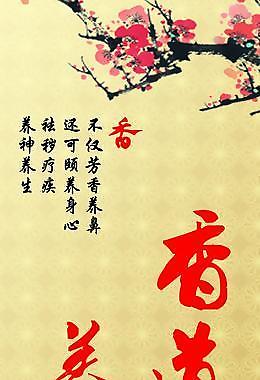 香道
香
不仅芳香养鼻
还可颐养身心
祛秽疗疾
养神养生
美